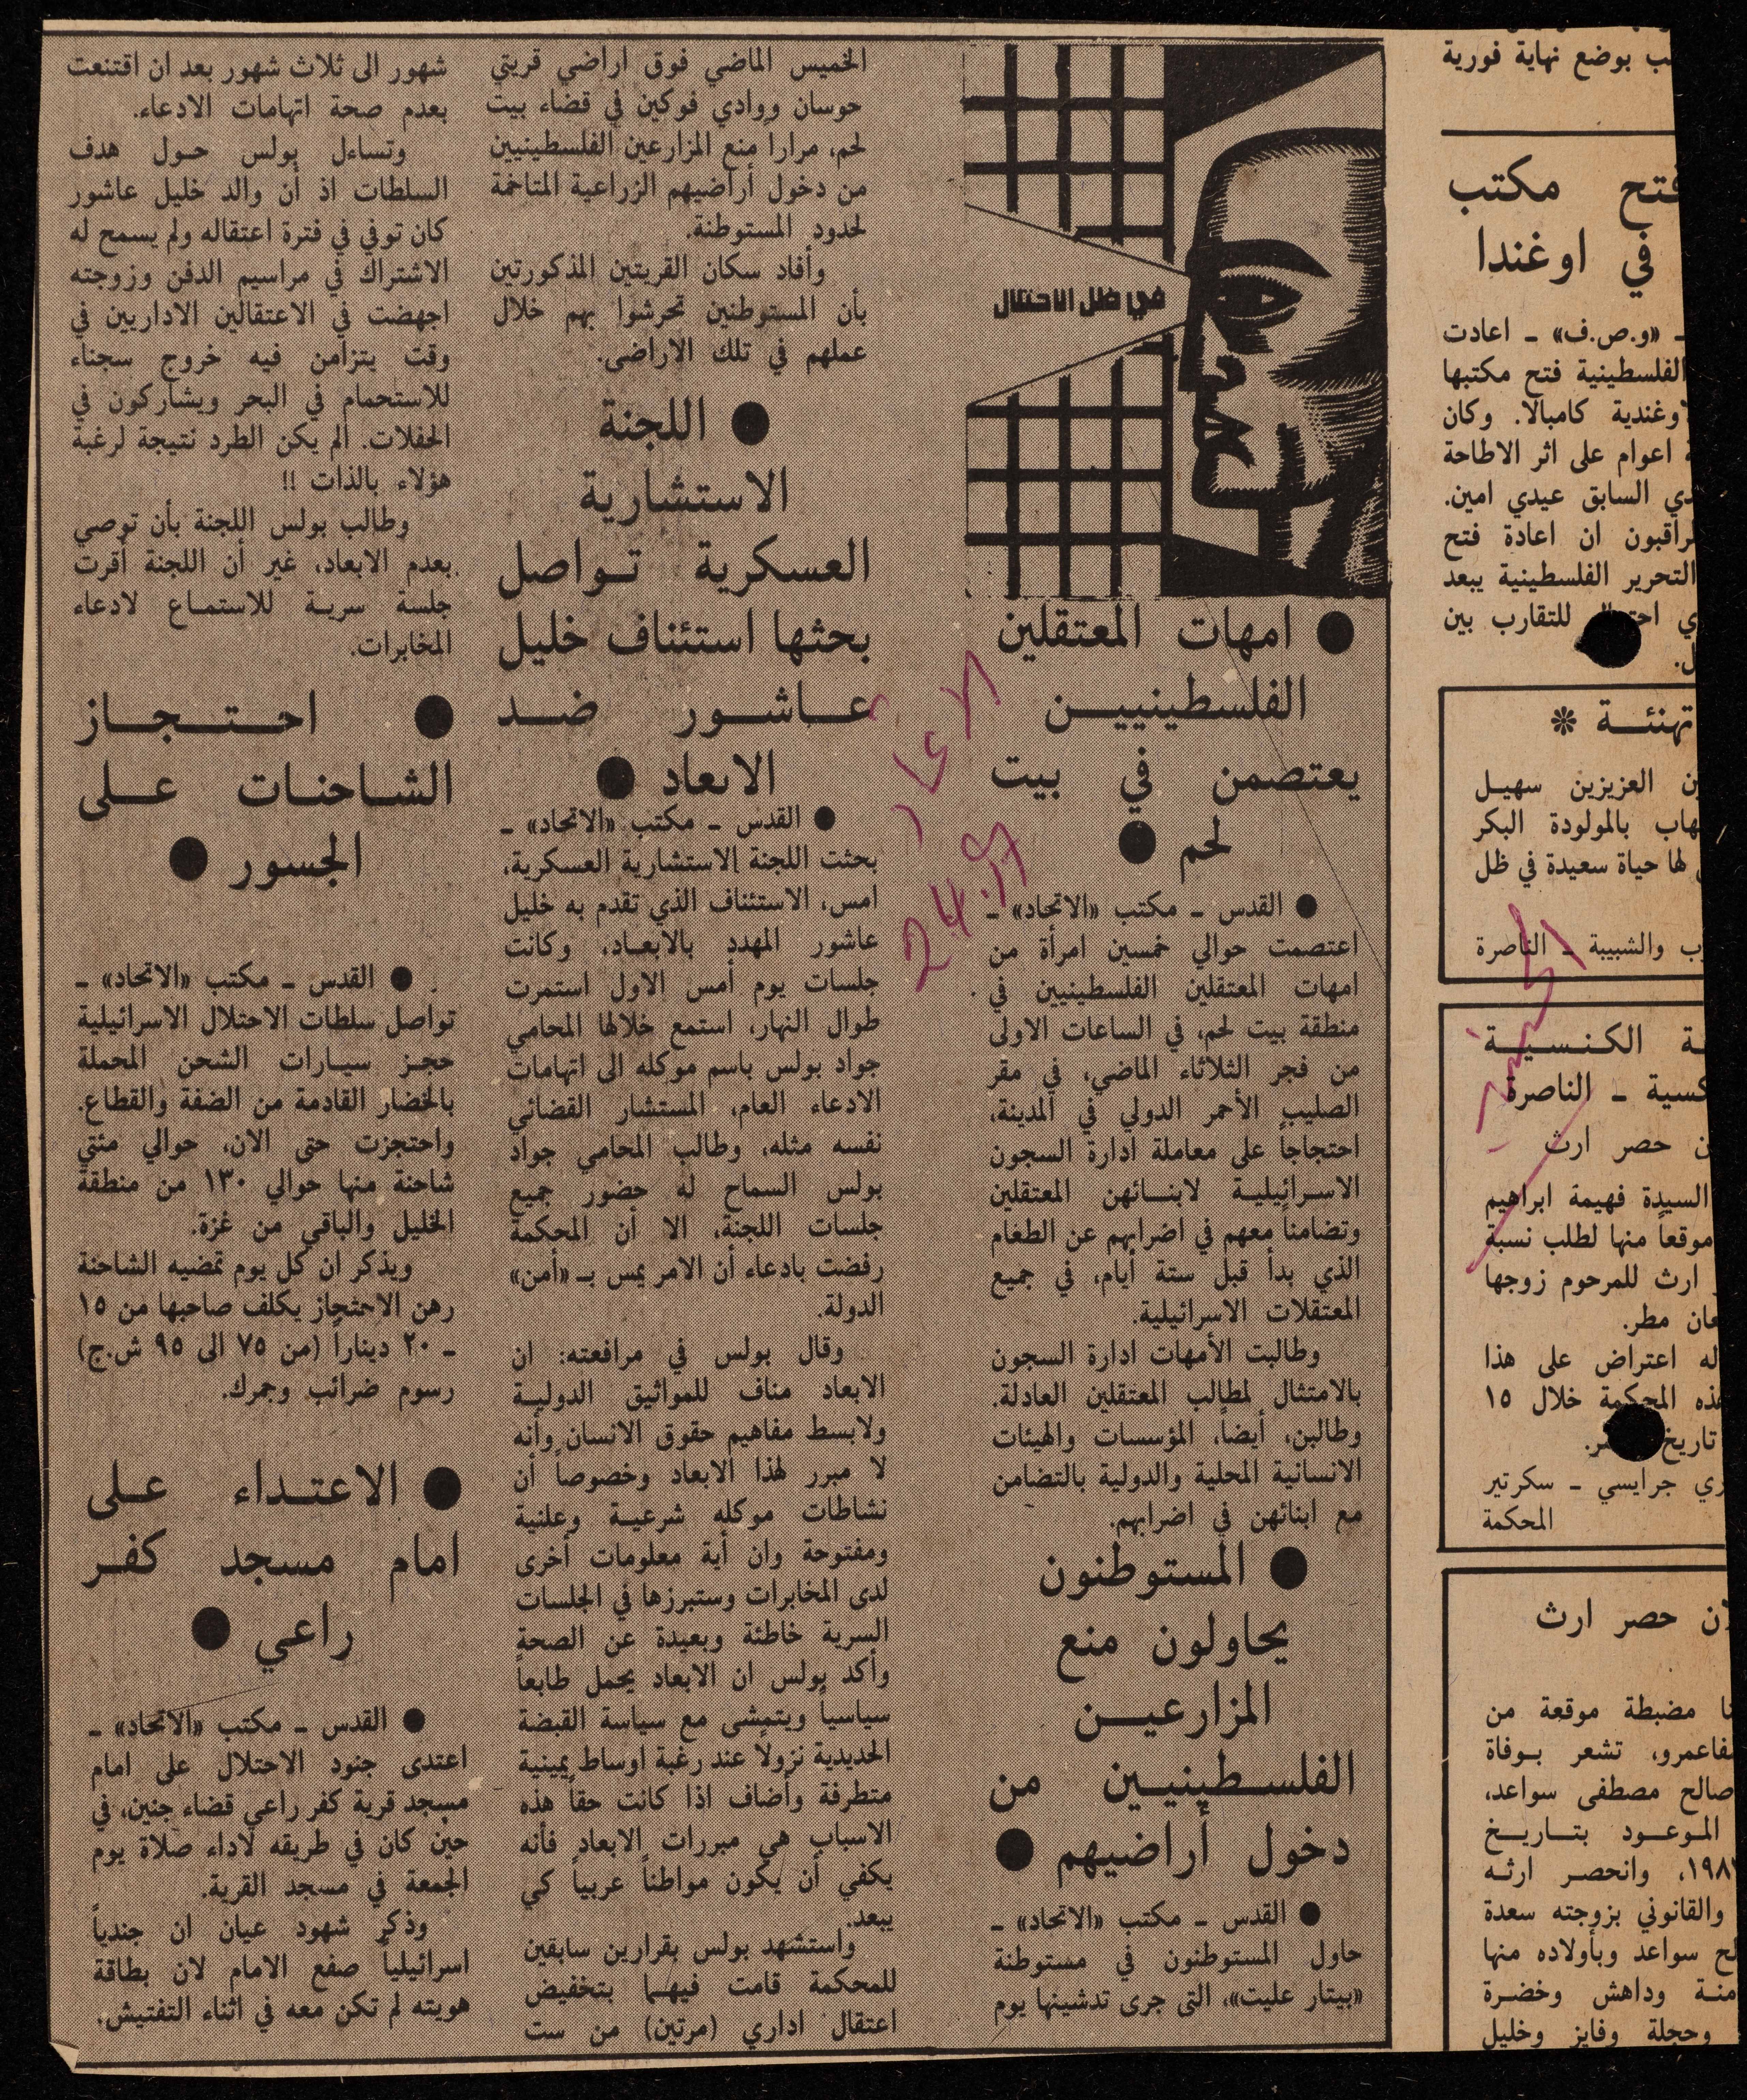 ب بوضع نهاية فورية
فتح مكتب
في اوغندا
ـ «و.ص.ف» ـ اعادت
الفلسطينية فتح مكتبها
اوغندية كامبالا. وكان
اعوام على اثر الاطاحة
دي السابق عيدي امين.
راقبون ان اعادة فتح
التحرير الفلسطينية يبعد
للتقارب بين
ل.
تهنئة *
ين العزيزين سهيل
هاب بالمولودة البكر
لها حياة سعيدة في ظل
ب والشبيبة ـ الناصرة
ـة الكنسية
كسية ـ الناصرة
ن حصر ارث
السيدة فهيمة ابراهيم
موقعاً منها لطلب نسبة
ارث للمرحوم زوجها
عان مطر.
له اعتراض على هذا
ذه المحكمة خلال ١٥
تاريخ
ري جرايسي ـ سكرتير
المحكمة
ن حصر ارث
نا مضبطة موقعة من
فاعمرو، تشعر بوفاة
صالح مصطفى سواعد،
الموعود بتاريخ
، وانحصر ارثه
والقانوني بزوجته سعدة
لح سواعد وبأولاده منها
منة وداهش وخضرة
وحجلة وفايز وخليل
في ظل الاحتلال
● امهات المعتقلين
الفلسطينيين
يعتصمن في بيت
لحم ●
● القدس ـ مكتب «الاتحاد» ـ
اعتصمت حوالي خمسين امرأة من
امهات المعتقلين الفلسطينيين في
منطقة بيت لحم، في الساعات الاولى
من فجر الثلاثاء الماضي، في مقر
الصليب الأحمر الدولي في المدينة،
احتجاجاً على معاملة ادارة السجون
الاسرائيلية لابنائهن المعتقلين
وتضامناً معهم في اضرابهم عن الطعام
الذي بدأ قبل ستة أيام، في جميع
المعتقلات الاسرائيلية.
وطالبت الأمهات ادارة السجون
بالامتثال لمطالب المعتقلين العادلة.
وطالبن، أيضاً، المؤسسات والهيئات
الانسانية المحلية والدولية بالتضامن
مع ابنائهن في اضرابهم.
● المستوطنون
يحاولون منع
المزارعين
الفلسطينيين من
دخول أراضيهم ●
● القدس ـ مكتب «الاتحاد» ـ
حاول المستوطنون في مستوطنة
«بيتار عليت»، التي جرى تدشينها يوم
الخميس الماضي فوق اراضي قريتي
حوسان ووادي فوكين في قضاء بيت
لحم، مراراً منع المزارعين الفلسطينيين
من دخول أراضيهم الزراعية المتاخمة
لحدود المستوطنة.
وأفاد سكان القريتين المذكورتين
بأن المستوطنين تحرشوا بهم خلال
عملهم في تلك الاراضي.
● اللجنة
الاستشارية
العسكرية تواصل
بحثها استئناف خليل
عاشور ضد
الابعاد ●
● القدس ـ مكتب «الاتحاد» ـ
بحثت اللجنة الاستشارية العسكرية،
امس، الاستئناف الذي تقدم به خليل
عاشور المهدد بالابعاد، وكانت
جلسات يوم أمس الاول استمرت
طوال النهار، استمع خلالها المحامي
جواد بولس باسم موكله الى اتهامات
الادعاء العام، المستشار القضائي
نفسه مثله، وطالب المحامي جواد
بولس السماح له حضور جميع
جلسات اللجنة، الا أن المحكمة
رفضت بادعاء أن الامر يمس بـ «أمن»
الدولة.
وقال بولس في مرافعته: ان
الابعاد مناف للمواثيق الدولية
ولابسط مفاهيم حقوق الانسان وأنه
لا مبرر لهذا الابعاد وخصوصاً أن
نشاطات موكله شرعية وعلنية
ومفتوحة وان أية معلومات أخرى
لدى المخابرات وستبرزها في الجلسات
السرية خاطئة وبعيدة عن الصحة
وأكد بولس ان الابعاد يحمل طابعاً
سياسياً ويتمشى مع سياسة القبضة
الحديدية نزولاً عند رغبة اوساط يمينية
متطرفة وأضاف اذا كانت حقاً هذه
الاسباب هي مبررات الابعاد فأنه
يكفي أن يكون مواطناً عربياً كي
يبعد.
واستشهد بولس بقرارين سابقين
للمحكمة قامت فيهما بتخفيض
اعتقال اداري (مرتين) من ست
شهور الى ثلاث شهور بعد ان اقتنعت
بعدم صحة اتهامات الادعاء.
وتساءل بولس حول هدف
السلطات اذ أن والد خليل عاشور
كان توفي في فترة اعتقاله ولم يسمح له
الاشتراك في مراسيم الدفن وزوجته
اجهضت في الاعتقالين الاداريين في
وقت يتزامن فيه خروج سجناء
للاستحمام في البحر ويشاركون في
الحفلات. الم يكن الطرد نتيجة لرغبة
هؤلاء بالذات !!
وطالب بولس اللجنة بأن توصي
بعدم الابعاد، غير أن اللجنة أقرت
جلسة سرية للاستماع لادعاء
المخابرات.
● احتجاز
الشاحنات على
الجسور ●
● القدس ـ مكتب «الاتحاد» ـ
تواصل سلطات الاحتلال الاسرائيلية
حجز سيارات الشحن المحملة
بالخضار القادمة من الضفة والقطاع.
واحتجزت حتى الان، حوالي مئتي
شاحنة منها حوالي ١٣٠ من منطقة
الخليل والباقي من غزة.
ويذكر ان كل يوم تمضيه الشاحنة
رهن الاحتجاز يكلف صاحبها من ١٥
ـ ٢٠ ديناراً (من ٧٥ الى ٩٥ ش.ج)
رسوم ضرائب وجمرك.
● الاعتداء على
امام مسجد كفر
راعي ●
● القدس ـ مكتب «الاتحاد» ـ
اعتدى جنود الاحتلال على امام
مسجد قرية كفر راعي قضاء جنين، في
حين كان في طريقه لاداء صلاة يوم
الجمعة في مسجد القرية.
وذكر شهود عيان ان جندياً
اسرائيلياً صفع الامام لان بطاقة
هويته لم تكن معه في اثناء التفتيش.